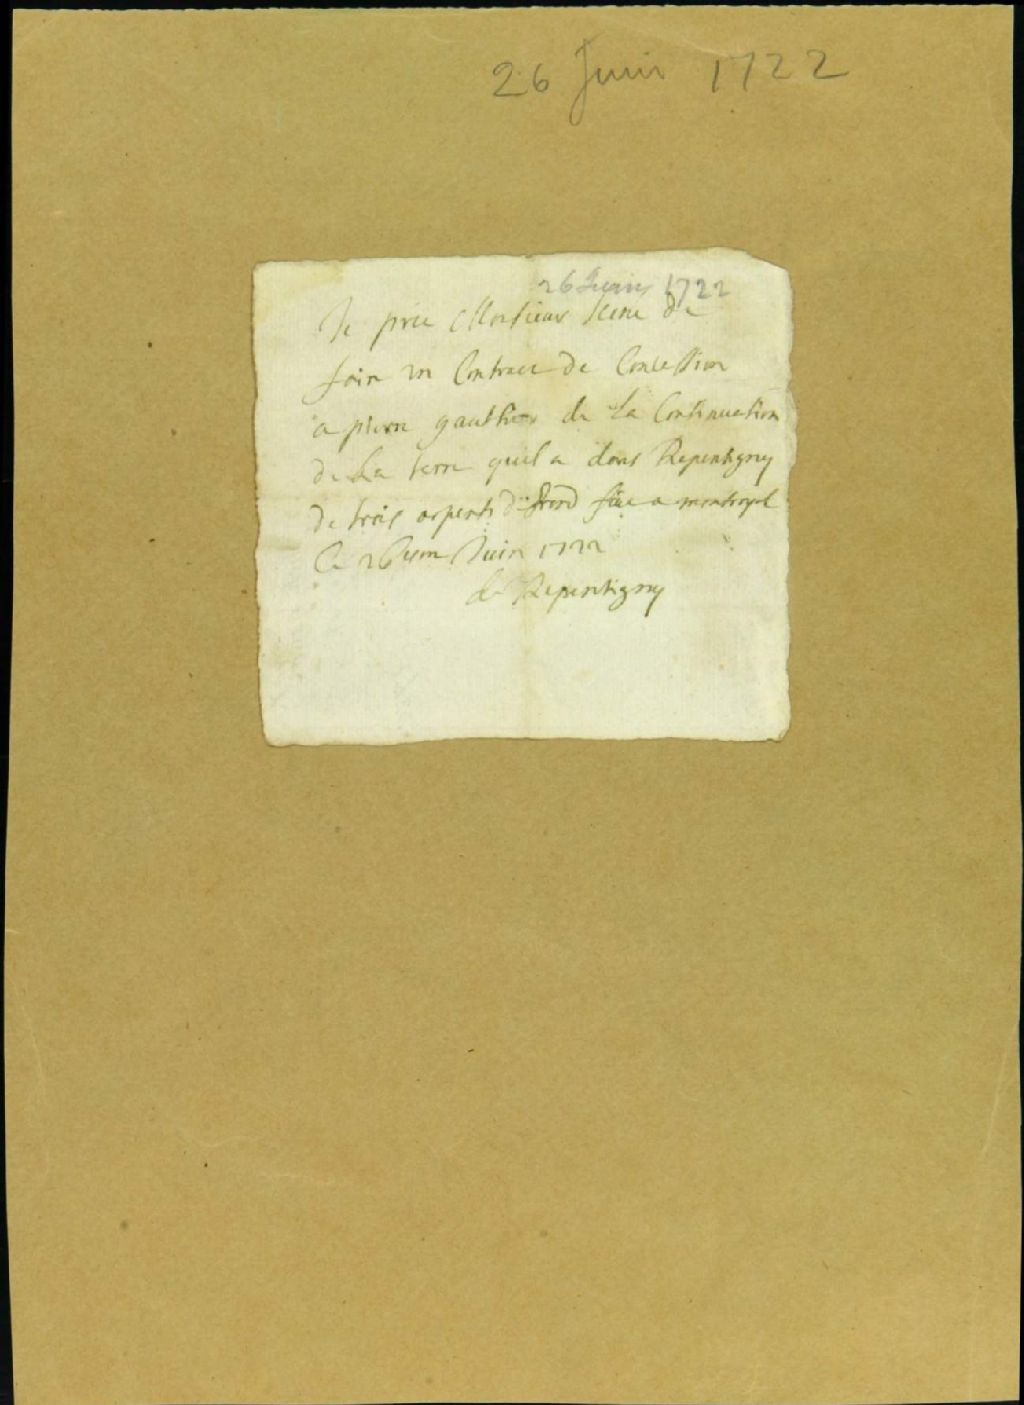 26 Juin 1722
26 Juin 1722
Je prie Monsieur Sene de
faire un Contract de Concession
a pierre gaulthier de la Continuation
de La terre quil a dans Repentigny
de trois arpents de frond fait a montreal
Ce 26 Juin 1722
de Repentigny